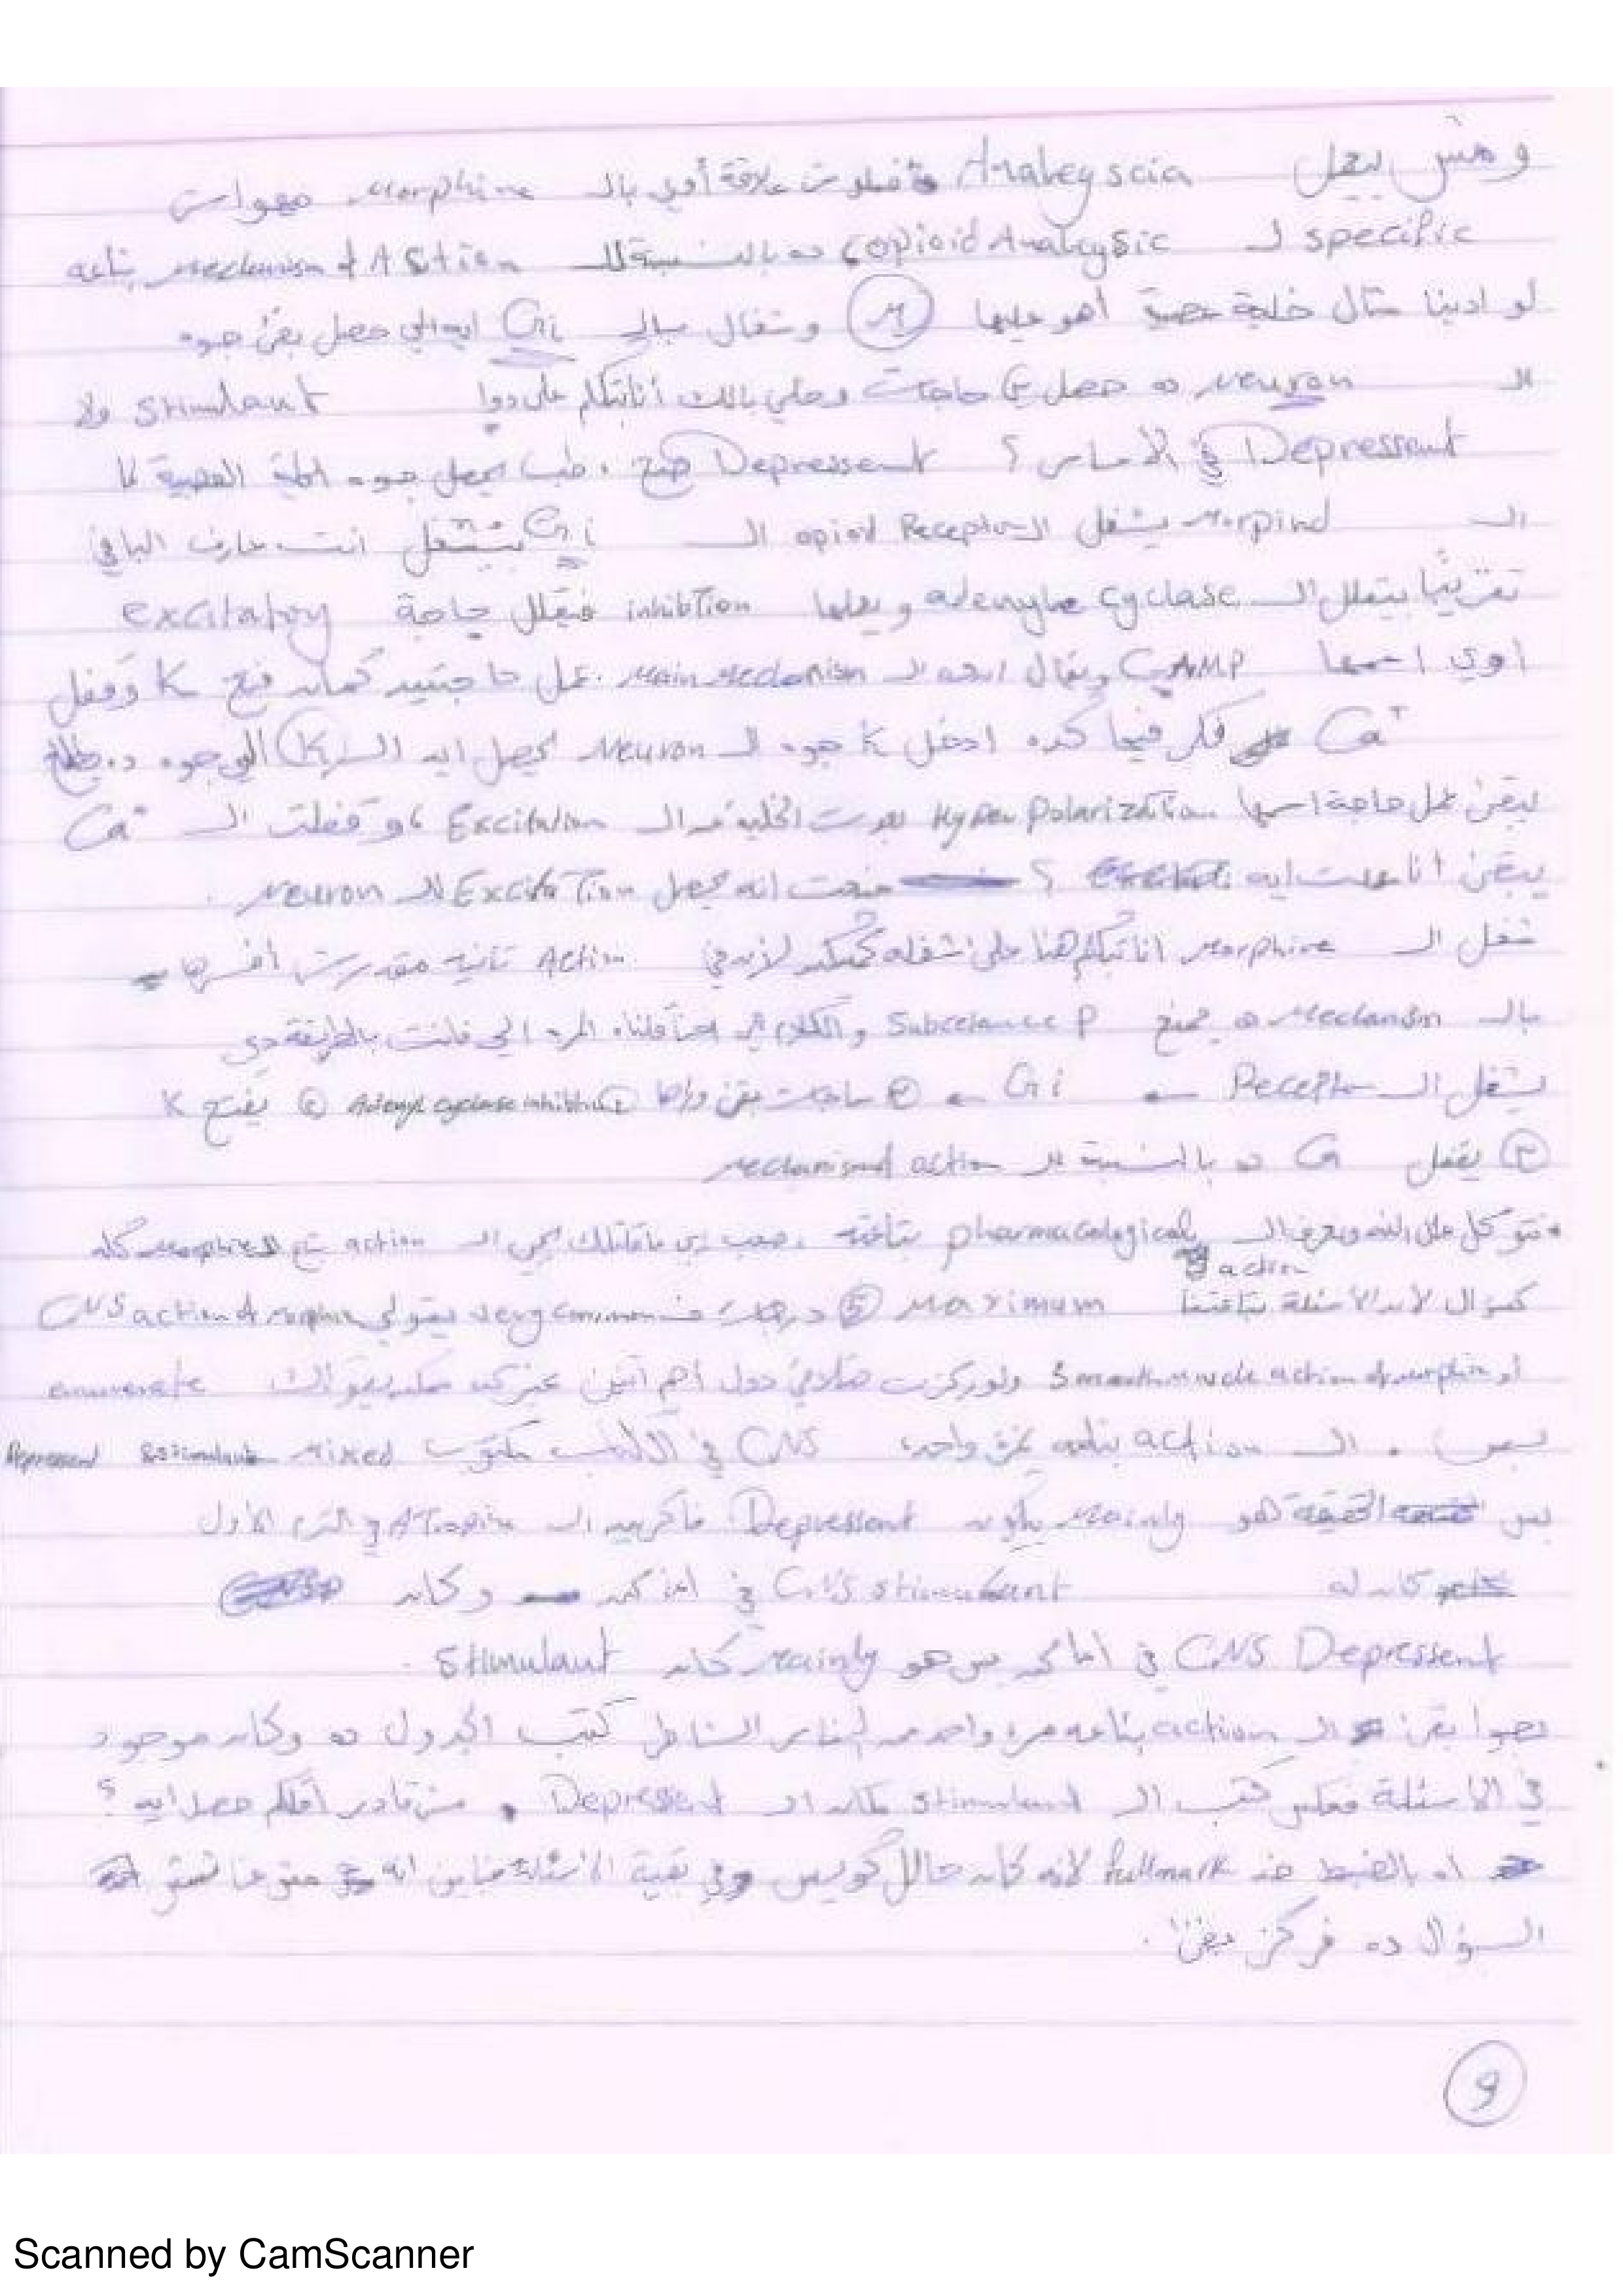 ومش بيعمل Analeyscia علاقة أوي بالـ Morphine
specific لـ opioid Analeysic ده بالنسبة للـ Mechanism of Action بتاعه
لو ادينا مثال خلية عصبية اهو عليها M وشغال بالـ Gi ايه الي حصل بقى جوه
الـ Neuron ده حصل حاجات وخلي بالك أنا بتكلم على دوا Stimulant ولا
Depressent في الأساس؟ Depressent صح، طب يحصل جوه الخلية العصبية لما
الـ Morpind يشغل الـ opiod Receptor الـ Gi بيشتغل انت عارف الباقي
تقريباً بيقلل الـ adenyle cyclase ويعملها inhibtion فيقلل حاجة excitatory
اوي اسمها CAMP ويقال ان ده الـ Main Mechanism. عمل حاجتين كمان فتح K وقفل
Ca+ فكر فيها كده ادخل K جوه الـ Neuron يحصل ايه الـ K الي جوه ده
يبقى عمل حاجة اسمها Hyper Polarization بعدت الخلية عن الـ Excitation، وقفلت الـ Ca+
يبقى انا عملت ايه؟ منعت انه يحصل Excitation للـ Neuron.
شغل الـ Morphine انا بتكلم هنا على شغله لأن في Action تانية مقدرش أفسرها
بالـ Mechanism ده يمنع Substance P والكلام الي احنا قلناه المرة الي فاتت بالطريقة دي
يشغل الـ Receptor ← Gi ← ③ حاجات بقى وراها ① Adenyl cyclase inhibition ② يفتح K
③ يقفل Ca ده بالنسبة للـ Mechanism of action
نتوكل على الله ونعرف الـ pharmacological action بتاعته، صعب زي ما قلتلك يجي الـ action بتاع الـ Morphine كله
كسؤال لأن الأسئلة بتاعتنا Maximum ⑤ درجات، very common يقولي CNS action of Morphin
أو Smooth muscle action of morphin ولو ركزت هتلاقي دول أهم اتنين غير كده ممكن يقولك enumerate
بس. الـ action بتاعه نمرة واحد: CNS في الكتاب مكتوب Mixed Depressent & stimulant
بس الحقيقة هو Mainly بيكون Depressent فاكرين الـ Atropine في الترم الأول
كان له CNS stimulant في اماكن وكان
CNS Depressent في اماكن بس هو Mainly كان Stimulant.
بصوا بقى الـ action بتاعه مرة واحد من الناس الشاطر كتب الجدول ده وكان موجود
في الأسئلة فعكس كتب الـ stimulant مكان الـ Depressent، مش قادر أقلكم حصل ايه؟
اه بالضبط خد fullmark لأنه كان حالل كويس وفي بقية الأسئلة
السؤال ده فركز بقى.
9
Scanned by CamScanner